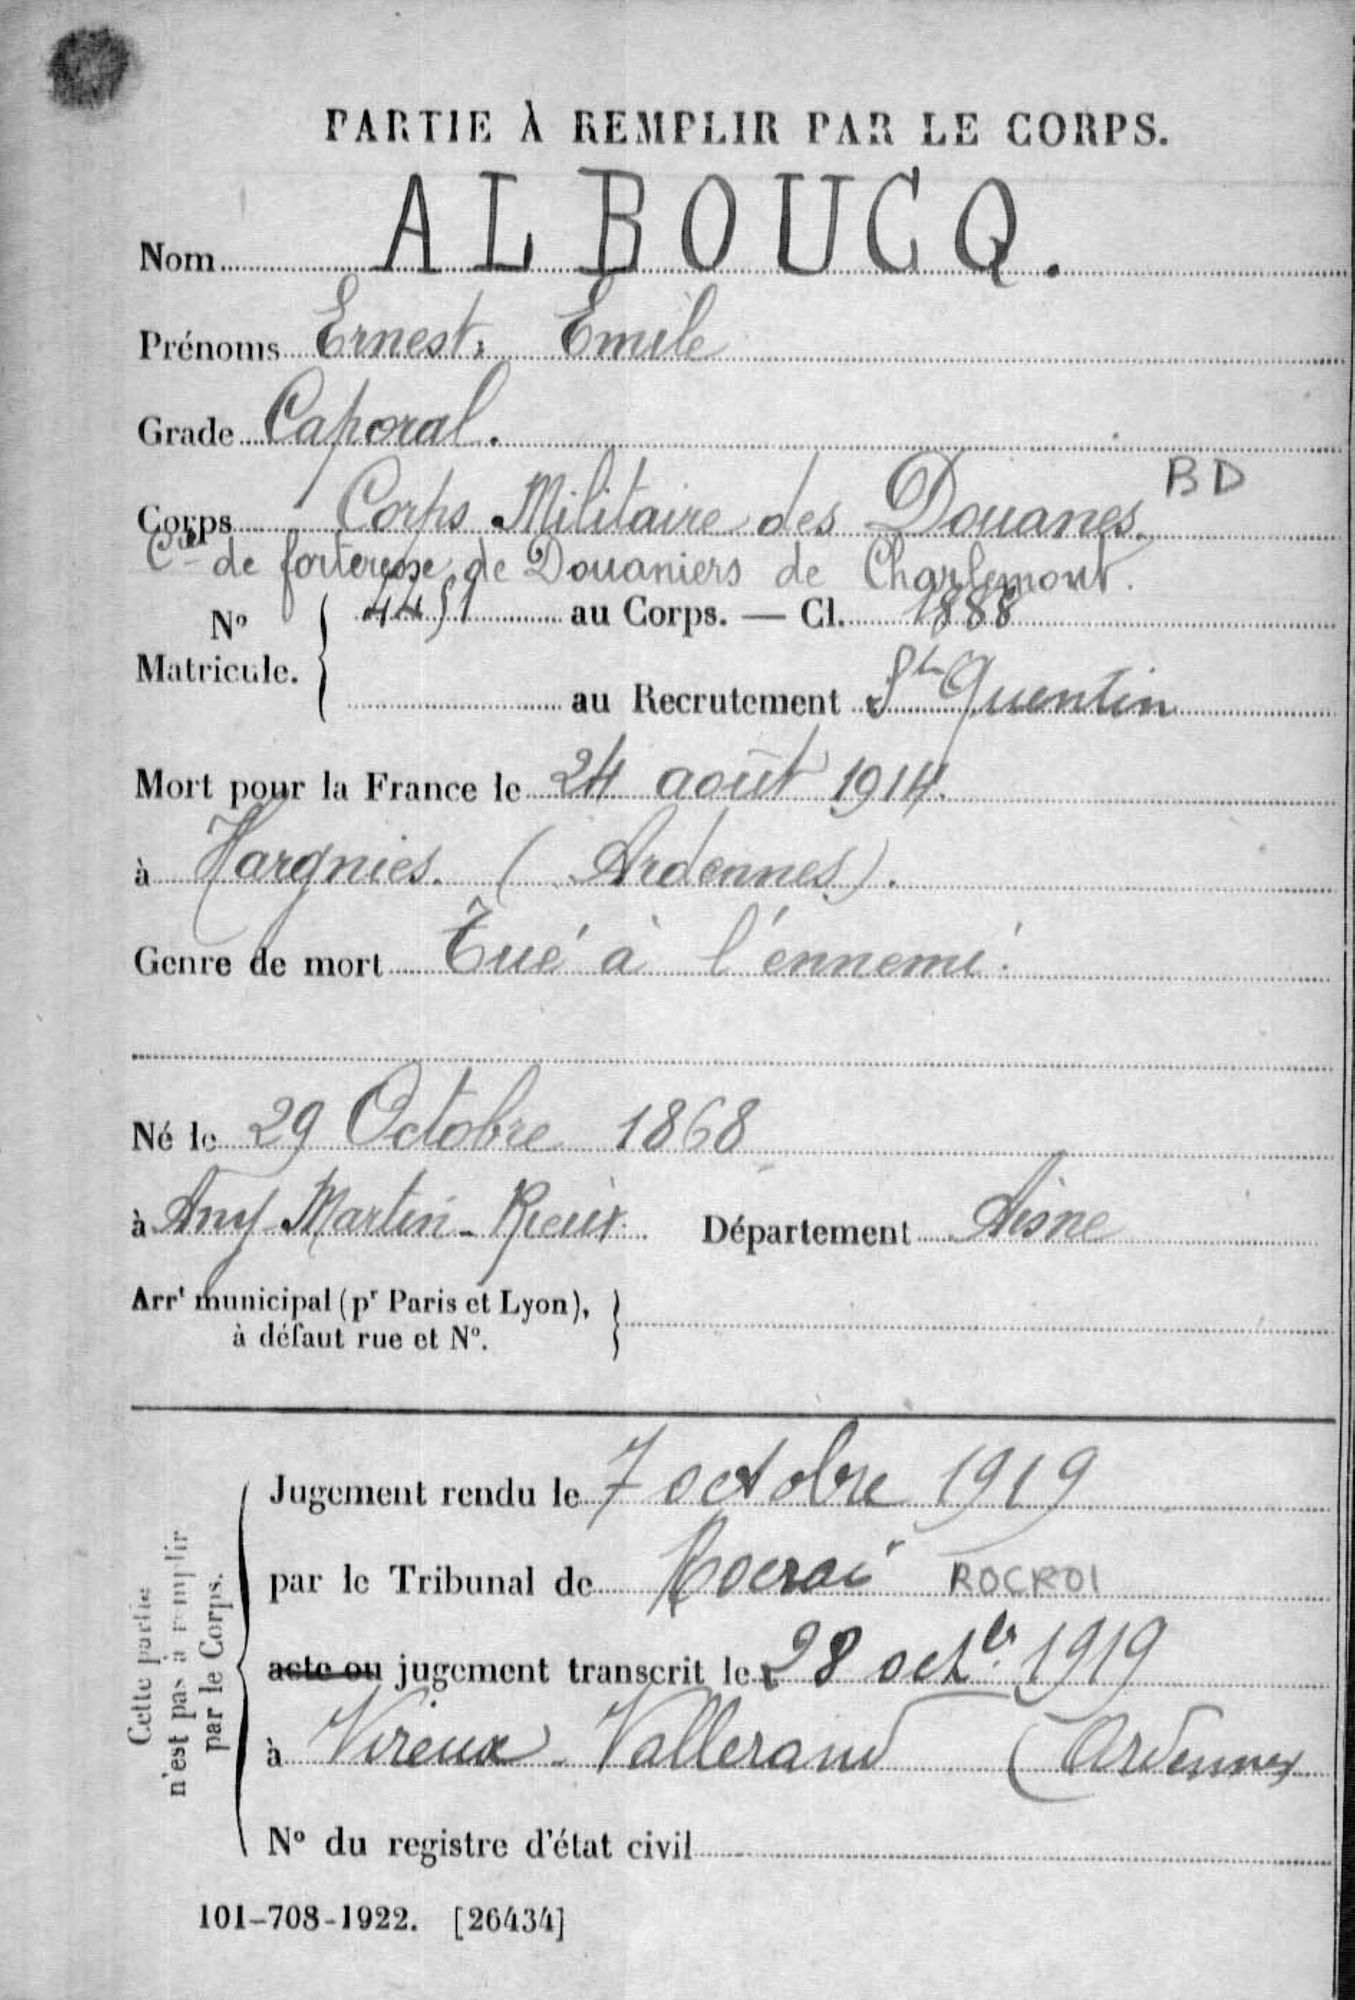 PARTIE À REMPLIR PAR LE CORPS.
Nom ALBOUCQ.
Prénoms Ernest, Emile
Grade Caporal.
BD
Corps Corps Militaire des Douanes.
Cie de forteresse de Douaniers de Charlemont.
Nº Matricule. 4451 au Corps. — Cl. 1888
au Recrutement St Quentin
Mort pour la France le 24 août 1914.
à Hargnies. (Ardennes).
Genre de mort Tué à l'ennemi.
Né le 29 Octobre 1868
à Any-Martin-Rieux. Département Aisne
Arrt municipal (pr Paris et Lyon),
à défaut rue et Nº.
Cette partie
n'est pas à remplir
par le Corps.
Jugement rendu le 7 octobre 1919
par le Tribunal de Rocroi ROCROI
acte ou jugement transcrit le 28 octbre 1919
à Vireux-Wallerand (Ardennes
Nº du registre d'état civil
101-708-1922. [26434]